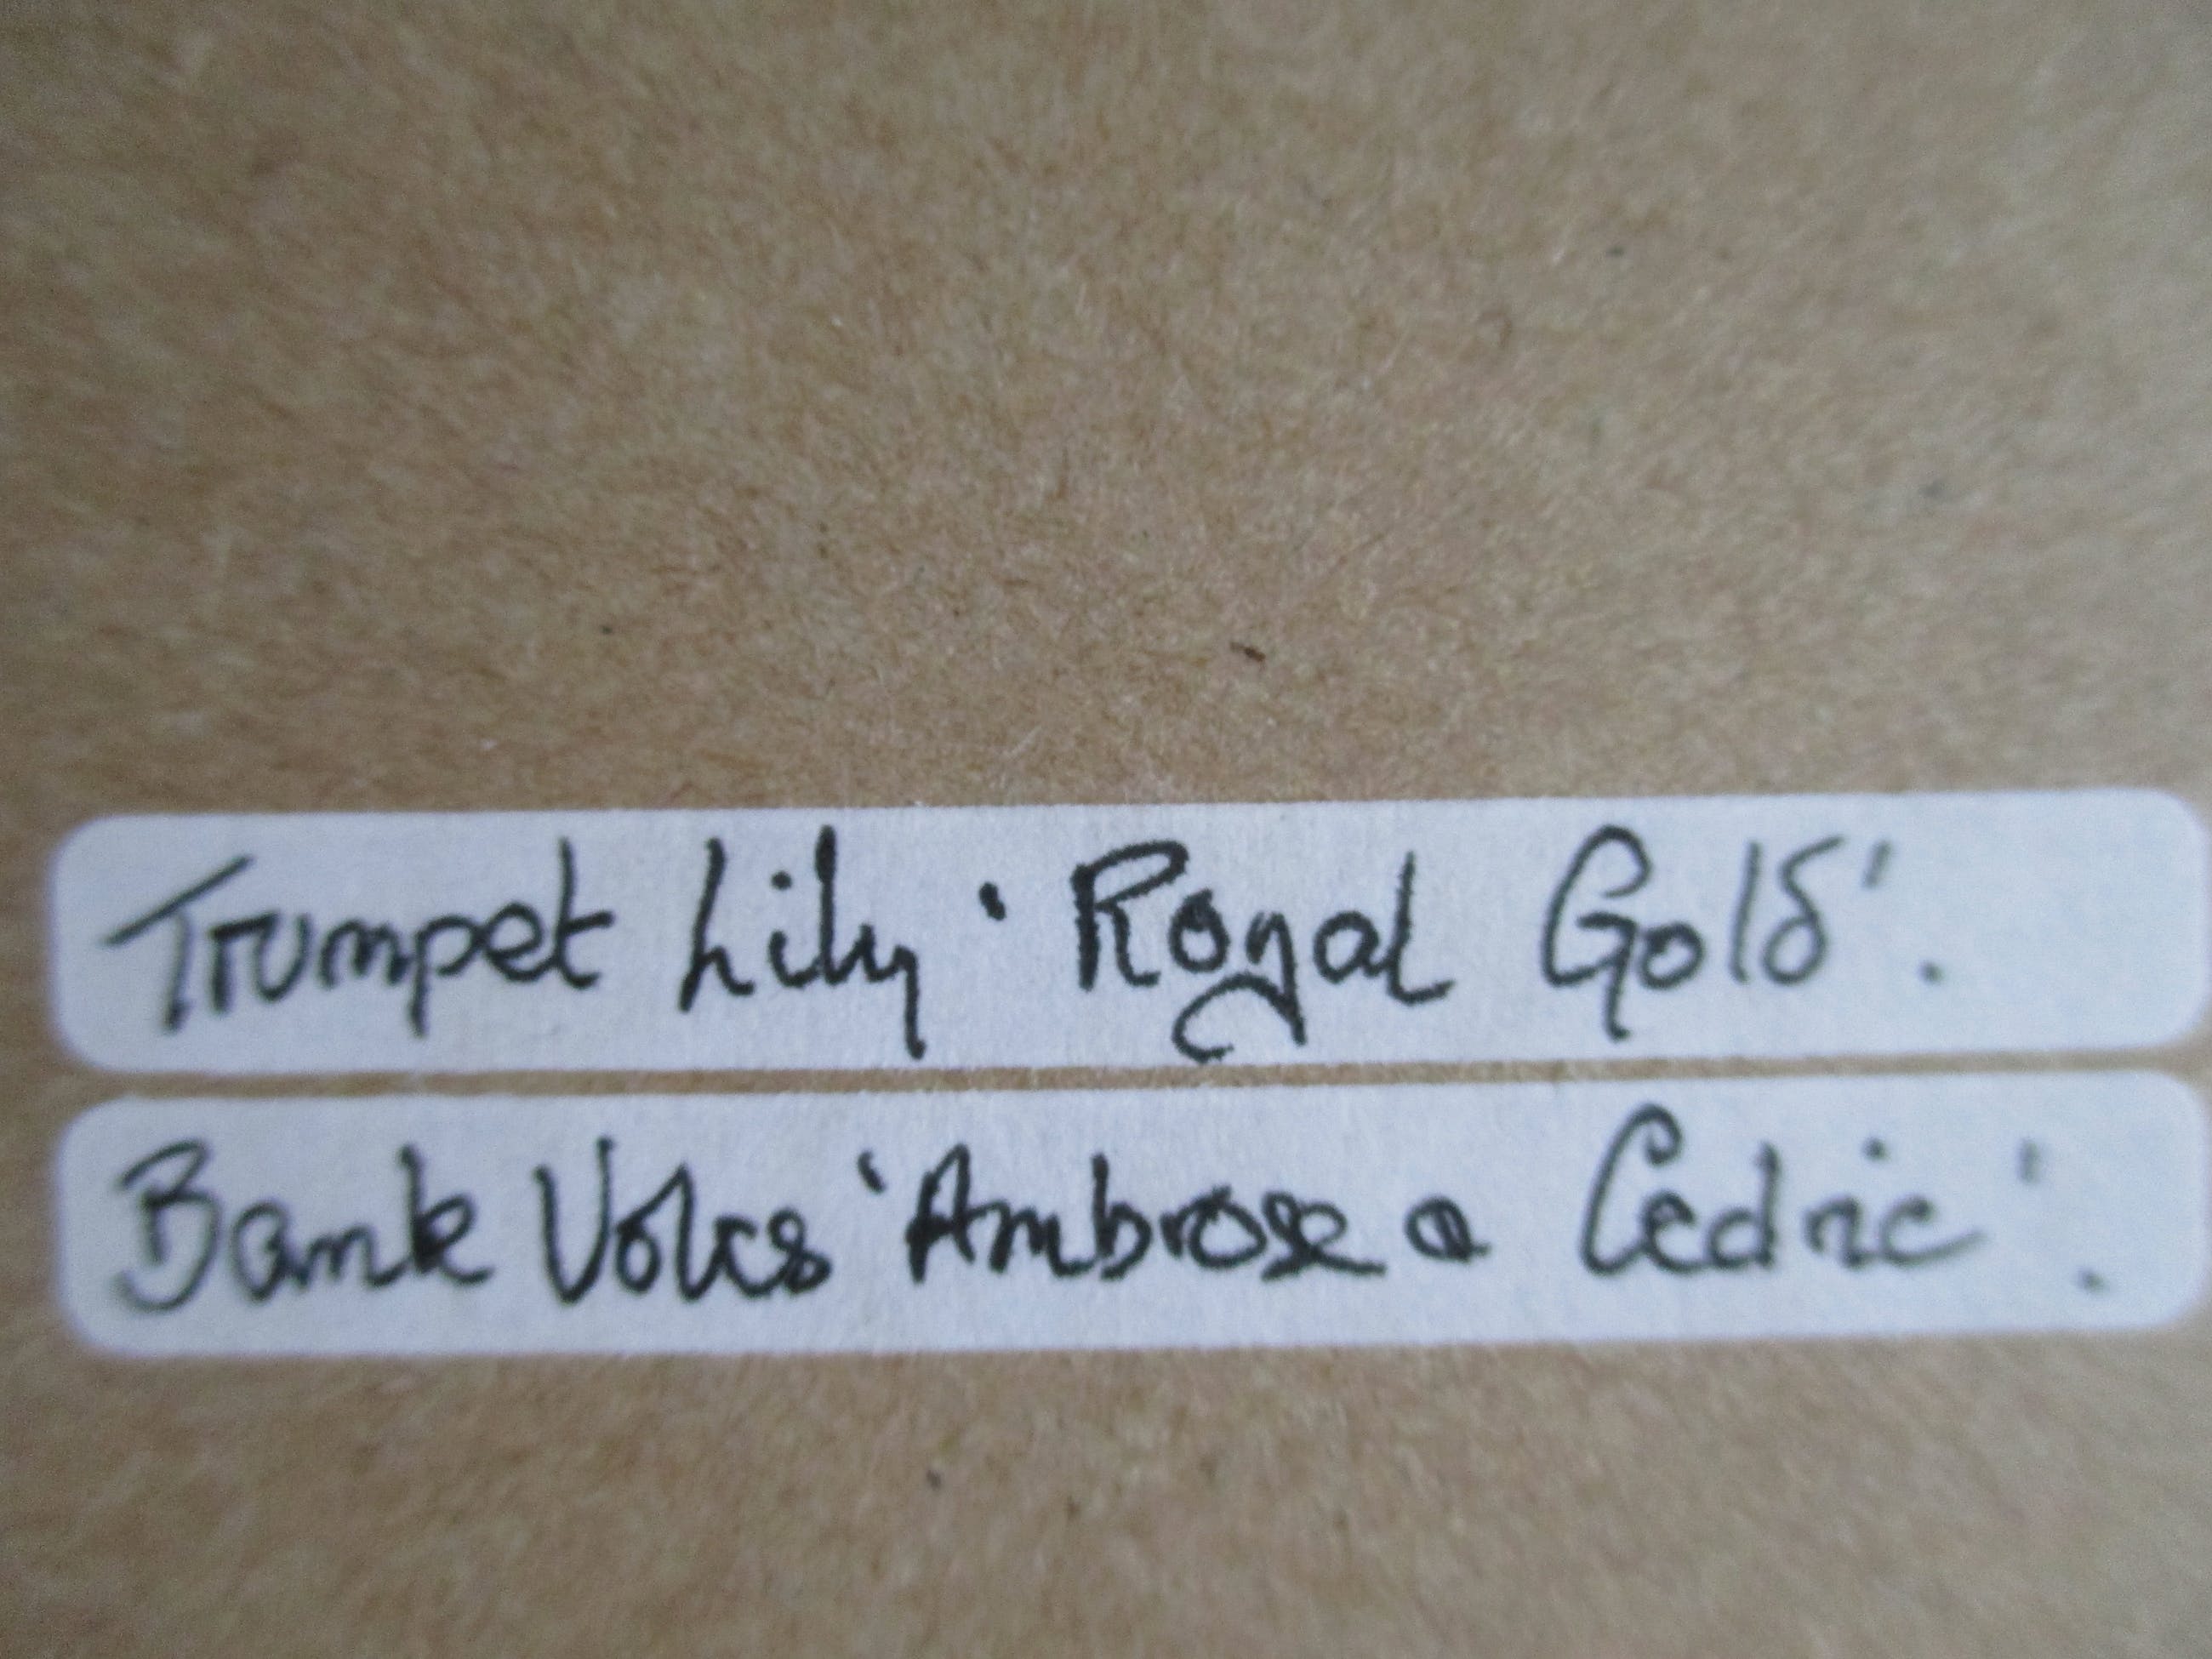 Trumpet Lily 'Royal Gold'.
Bank Voles 'Ambrose & Cedric'.